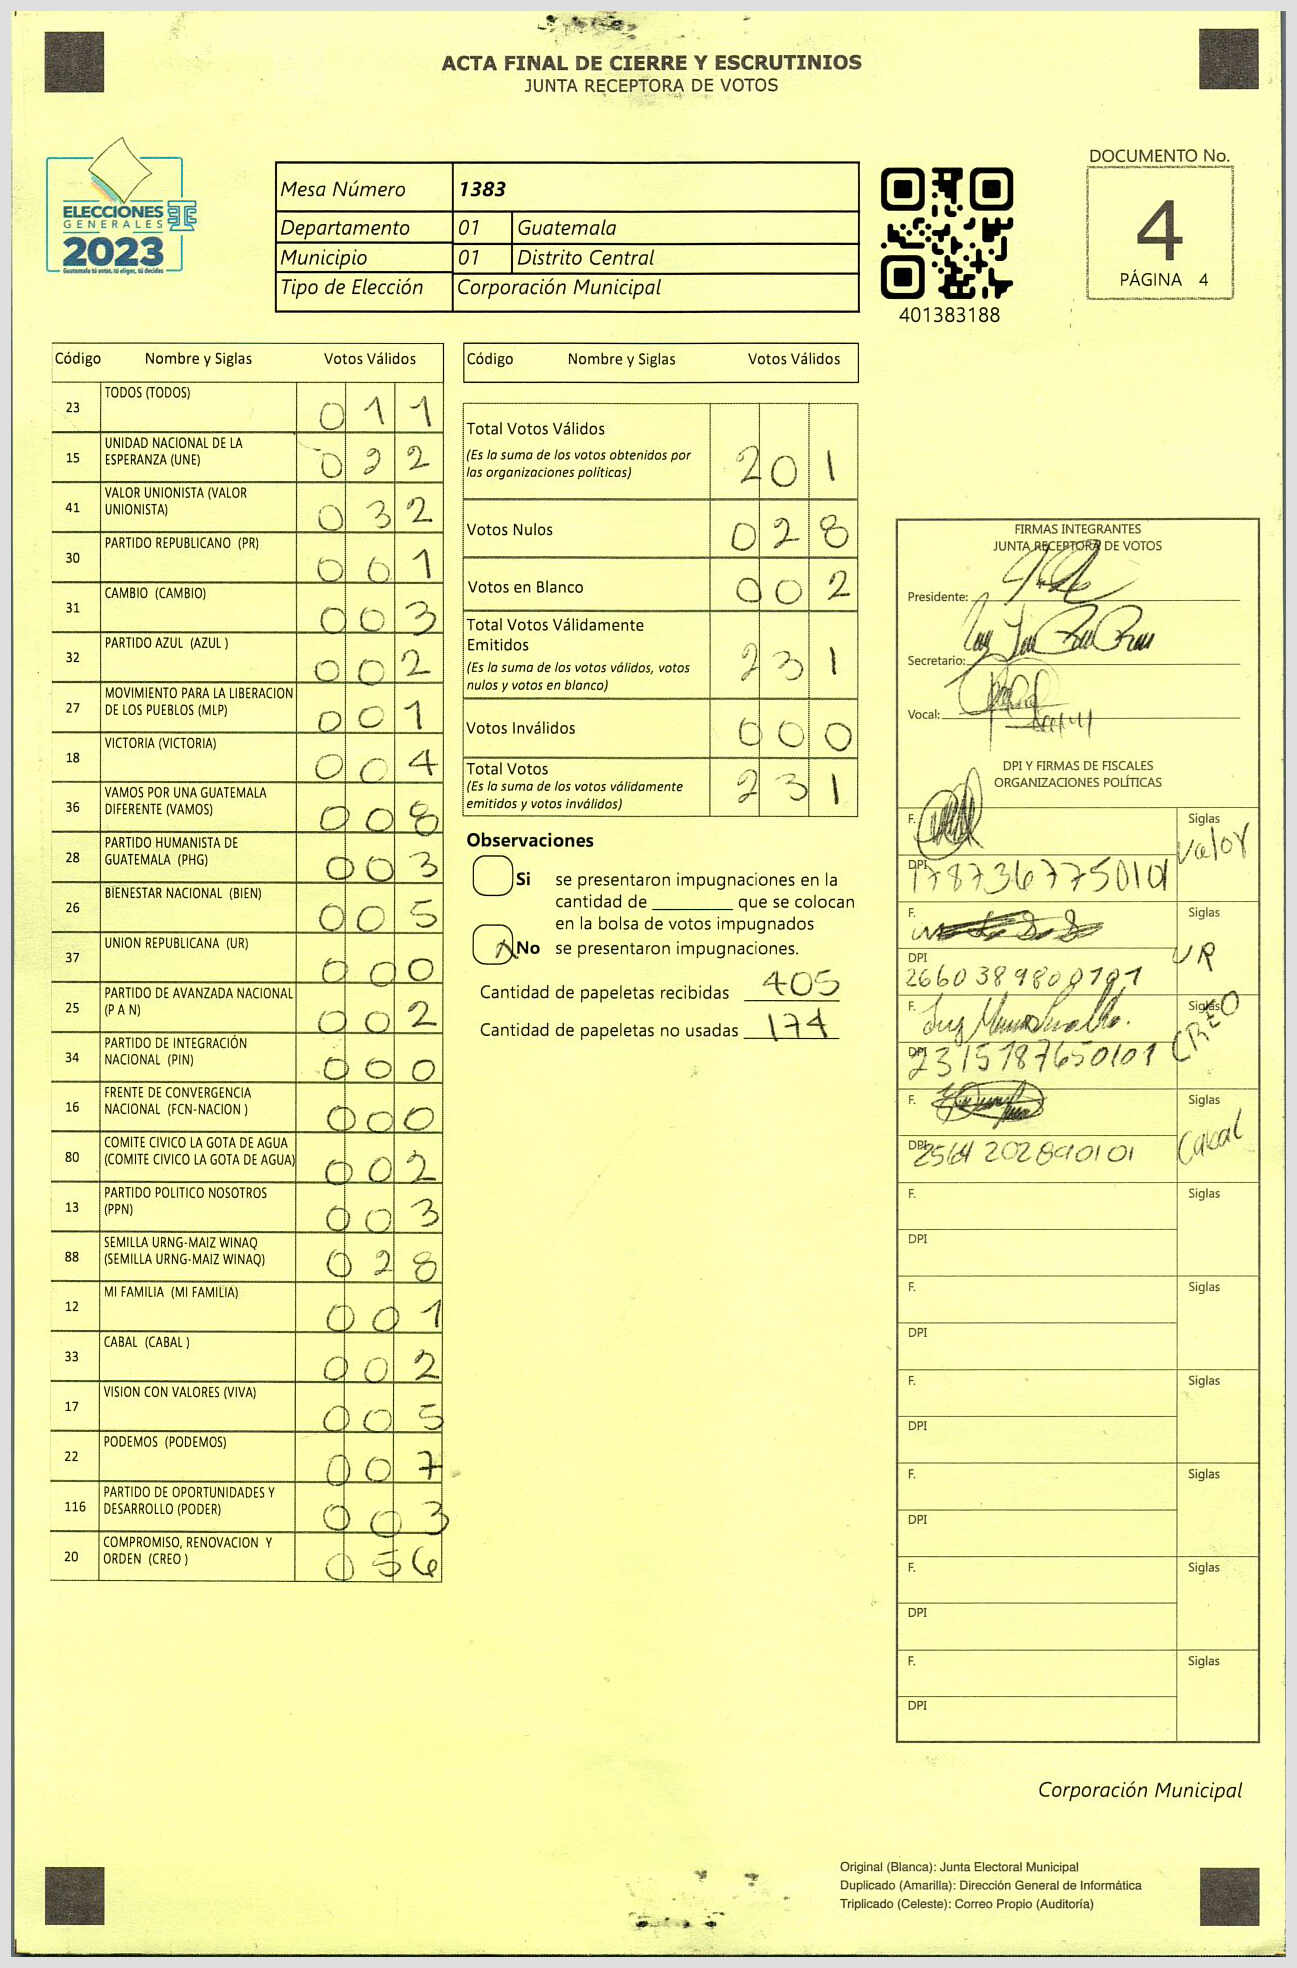 ACTA FINAL DE CIERRE Y ESCRUTINIOS
JUNTA RECEPTORA DE VOTOS
ELECCIONES
GENERALES
2023
Guatemala tú votas, tú eliges, tú decides
Mesa Número 1383
Departamento 01 Guatemala
Municipio 01 Distrito Central
Tipo de Elección Corporación Municipal
401383188
DOCUMENTO No.
4
PÁGINA 4
Código Nombre y Siglas Votos Válidos
23 TODOS (TODOS) 0 1 1
15 UNIDAD NACIONAL DE LA
ESPERANZA (UNE) 0 2 2
41 VALOR UNIONISTA (VALOR
UNIONISTA) 0 3 2
30 PARTIDO REPUBLICANO (PR) 0 0 1
31 CAMBIO (CAMBIO) 0 0 3
32 PARTIDO AZUL (AZUL ) 0 0 2
27 MOVIMIENTO PARA LA LIBERACION
DE LOS PUEBLOS (MLP) 0 0 1
18 VICTORIA (VICTORIA) 0 0 4
36 VAMOS POR UNA GUATEMALA
DIFERENTE (VAMOS) 0 0 8
28 PARTIDO HUMANISTA DE
GUATEMALA (PHG) 0 0 3
26 BIENESTAR NACIONAL (BIEN) 0 0 5
37 UNION REPUBLICANA (UR) 0 0 0
25 PARTIDO DE AVANZADA NACIONAL
(P A N) 0 0 2
34 PARTIDO DE INTEGRACIÓN
NACIONAL (PIN) 0 0 0
16 FRENTE DE CONVERGENCIA
NACIONAL (FCN-NACION ) 0 0 0
80 COMITE CIVICO LA GOTA DE AGUA
(COMITE CIVICO LA GOTA DE AGUA) 0 0 2
13 PARTIDO POLITICO NOSOTROS
(PPN) 0 0 3
88 SEMILLA URNG-MAIZ WINAQ
(SEMILLA URNG-MAIZ WINAQ) 0 2 8
12 MI FAMILIA (MI FAMILIA) 0 0 1
33 CABAL (CABAL ) 0 0 2
17 VISION CON VALORES (VIVA) 0 0 5
22 PODEMOS (PODEMOS) 0 0 7
116 PARTIDO DE OPORTUNIDADES Y
DESARROLLO (PODER) 0 0 3
20 COMPROMISO, RENOVACION Y
ORDEN (CREO ) 0 5 6
Código Nombre y Siglas Votos Válidos
Total Votos Válidos
(Es la suma de los votos obtenidos por
las organizaciones políticas) 2 0 1
Votos Nulos 0 2 8
Votos en Blanco 0 0 2
Total Votos Válidamente
Emitidos
(Es la suma de los votos válidos, votos
nulos y votos en blanco) 2 3 1
Votos Inválidos 0 0 0
Total Votos
(Es la suma de los votos válidamente
emitidos y votos inválidos) 2 3 1
Observaciones
Si se presentaron impugnaciones en la
cantidad de ________ que se colocan
en la bolsa de votos impugnados
X No se presentaron impugnaciones.
Cantidad de papeletas recibidas 405
Cantidad de papeletas no usadas 174
FIRMAS INTEGRANTES
JUNTA RECEPTORA DE VOTOS
Presidente:
Secretario:
Vocal:
DPI Y FIRMAS DE FISCALES
ORGANIZACIONES POLÍTICAS
F. Siglas
Valor
DPI
F. Siglas
UR
DPI
F. Siglas
CREO
DPI 2315187650101
F. Siglas
Cabal
DPI 2564 202890101
F. Siglas
DPI
F. Siglas
DPI
F. Siglas
DPI
F. Siglas
DPI
F. Siglas
DPI
F. Siglas
DPI
Corporación Municipal
Original (Blanca): Junta Electoral Municipal
Duplicado (Amarilla): Dirección General de Informática
Triplicado (Celeste): Correo Propio (Auditoría)